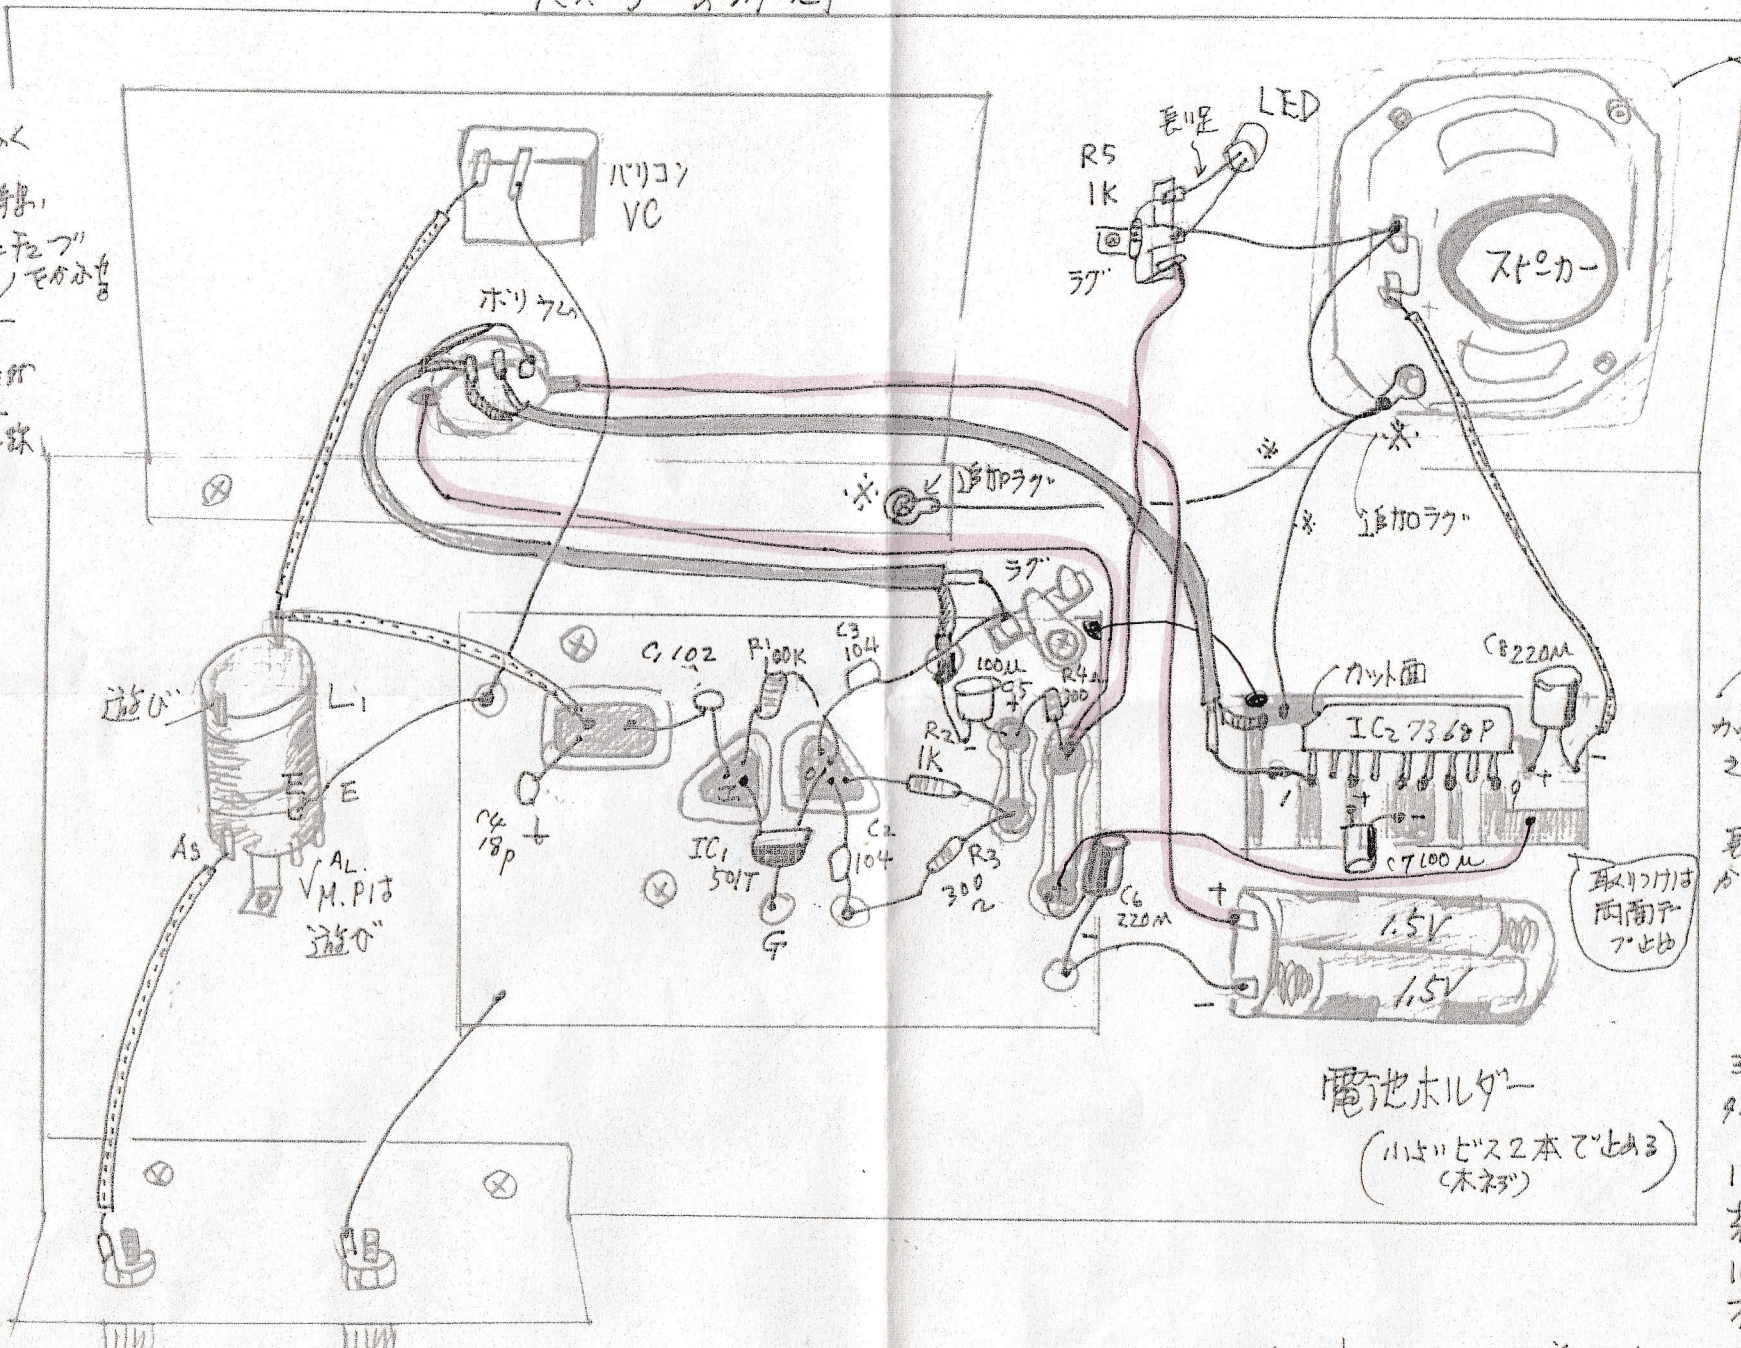 LED
長い足
R5
1K
ラグ
バリコン
VC
スピーカー
ボリウム
※
追加ラグ
※
※
※
追加ラグ
ラグ
遊び
L1
E
E
As
AL.
M.P1は
遊び
C1 102
R1 100K
C3
104
100μ
C5
+
-
R4
300
R2
1K
C4
18p
IC1
501T
C2
104
R3
300
Ω
G
C6
220μ
-
カット面
IC2 7368P
C8 220μ
+
-
1
+
-
9
+
-
C7 100μ
取りつけは
両面テー
プ止め
+
1.5V
1.5V
-
電池ホルダー
(小さいビス2本で止める)
(木ネジ)